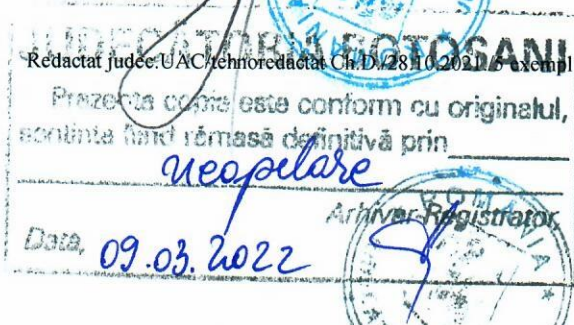 JUDECĂTORIA BOTOȘANI
Redactat judec.UAC/tehnoredactat Ch.D./28.10.2021/5 exempl
Prezenta copie este conform cu originalul,
sentința fiind rămasă definitivă prin
neapelare
Arhivar-Registrator,
Data, 09.03.2022
ROMANIA